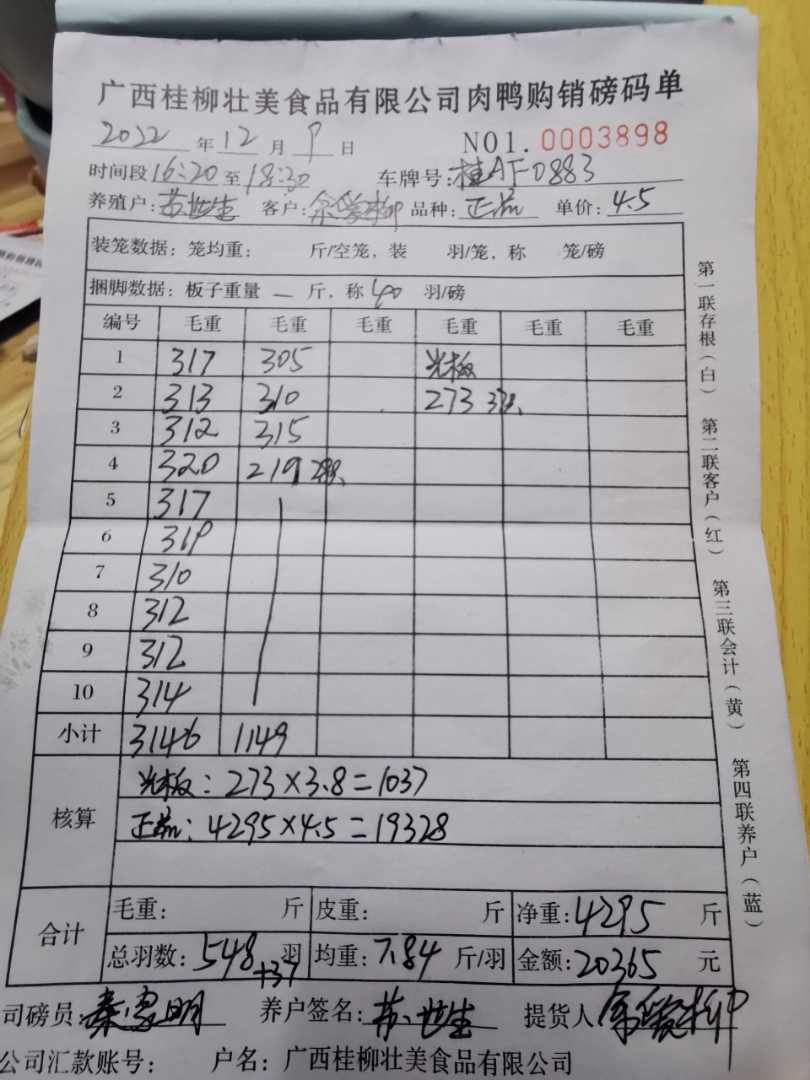 广西桂柳壮美食品有限公司肉鸭购销磅码单
2022 年 12 月 9 日 NO1. 0003898
时间段 16:20 至 18:30 车牌号: 桂AF0883
养殖户: 苏世生 客户: 品种: 正品 单价: 4.5
装笼数据: 笼均重: 斤/空笼, 装 羽/笼, 称 笼/磅
捆脚数据: 板子重量 — 斤, 称 40 羽/磅
编号 毛重 毛重 毛重 毛重 毛重 毛重
1 317 305 光板
2 313 310 273
3 312 315
4 320 219
5 317
6 319
7 310
8 312
9 312
10 314
小计 3146 1149
核算 光板: 273×3.8=1037
正品: 4295×4.5=19328
合计 毛重: 斤 皮重: 斤 净重: 4295 斤
总羽数: 548+37 羽 均重: 7.84 斤/羽 金额: 20365 元
司磅员: 养户签名: 苏世生 提货人
公司汇款账号: 户名: 广西桂柳壮美食品有限公司
第一联存根(白) 第二联客户(红) 第三联会计(黄) 第四联养户(蓝)